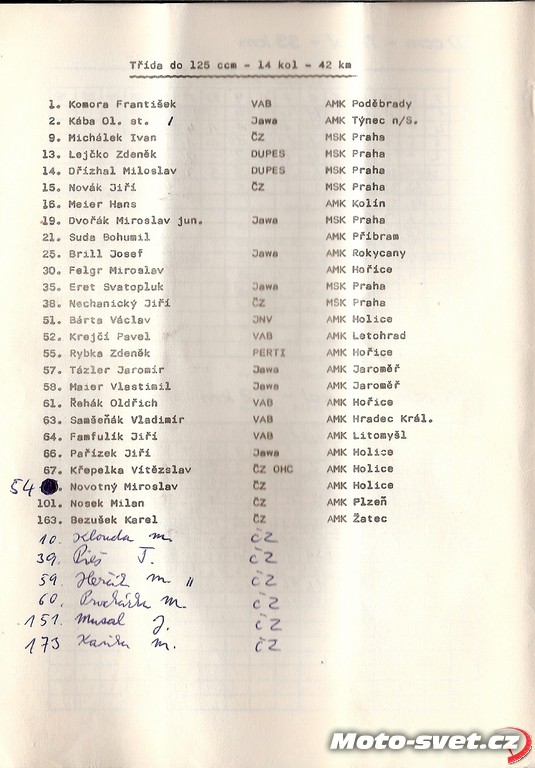 Třída do 125 ccm - 14 kol - 42 km
1. Komora František VAB AMK Poděbrady
2. Kába Ol. st. / Jawa AMK Týnec n/S.
9. Michálek Ivan ČZ MSK Praha
13. Lejčko Zdeněk DUPES MSK Praha
14. Dřízhal Miloslav DUPES MSK Praha
15. Novák Jiří ČZ MSK Praha
16. Meier Hans AMK Kolín
19. Dvořák Miroslav jun. Jawa MSK Praha
21. Suda Bohumil AMK Příbram
25. Brill Josef Jawa AMK Rokycany
30. Felgr Miroslav AMK Hořice
35. Eret Svatopluk Jawa MSK Praha
38. Nechanický Jiří ČZ MSK Praha
51. Bárta Václav JNV AMK Holice
52. Krejčí Pavel VAB AMK Letohrad
55. Rybka Zdeněk PERTI AMK Hořice
57. Tázler Jaromír Jawa AMK Jaroměř
58. Maier Vlastimil Jawa AMK Jaroměř
61. Řehák Oldřich VAB AMK Hořice
63. Samšeňák Vladimír VAB AMK Hradec Král.
64. Famfulík Jiří VAB AMK Litomyšl
66. Pařízek Jiří Jawa AMK Holice
67. Křepelka Vítězslav ČZ OHC AMK Holice
54 Novotný Miroslav ČZ AMK Holice
101. Nosek Milan ČZ AMK Plzeň
163. Bezušek Karel ČZ AMK Žatec
10. Klouda M. ČZ
39. T. ČZ
59. M. " ČZ
60. Procházka M. ČZ
151. Musal J. ČZ
173 M. ČZ
Moto-svet.cz